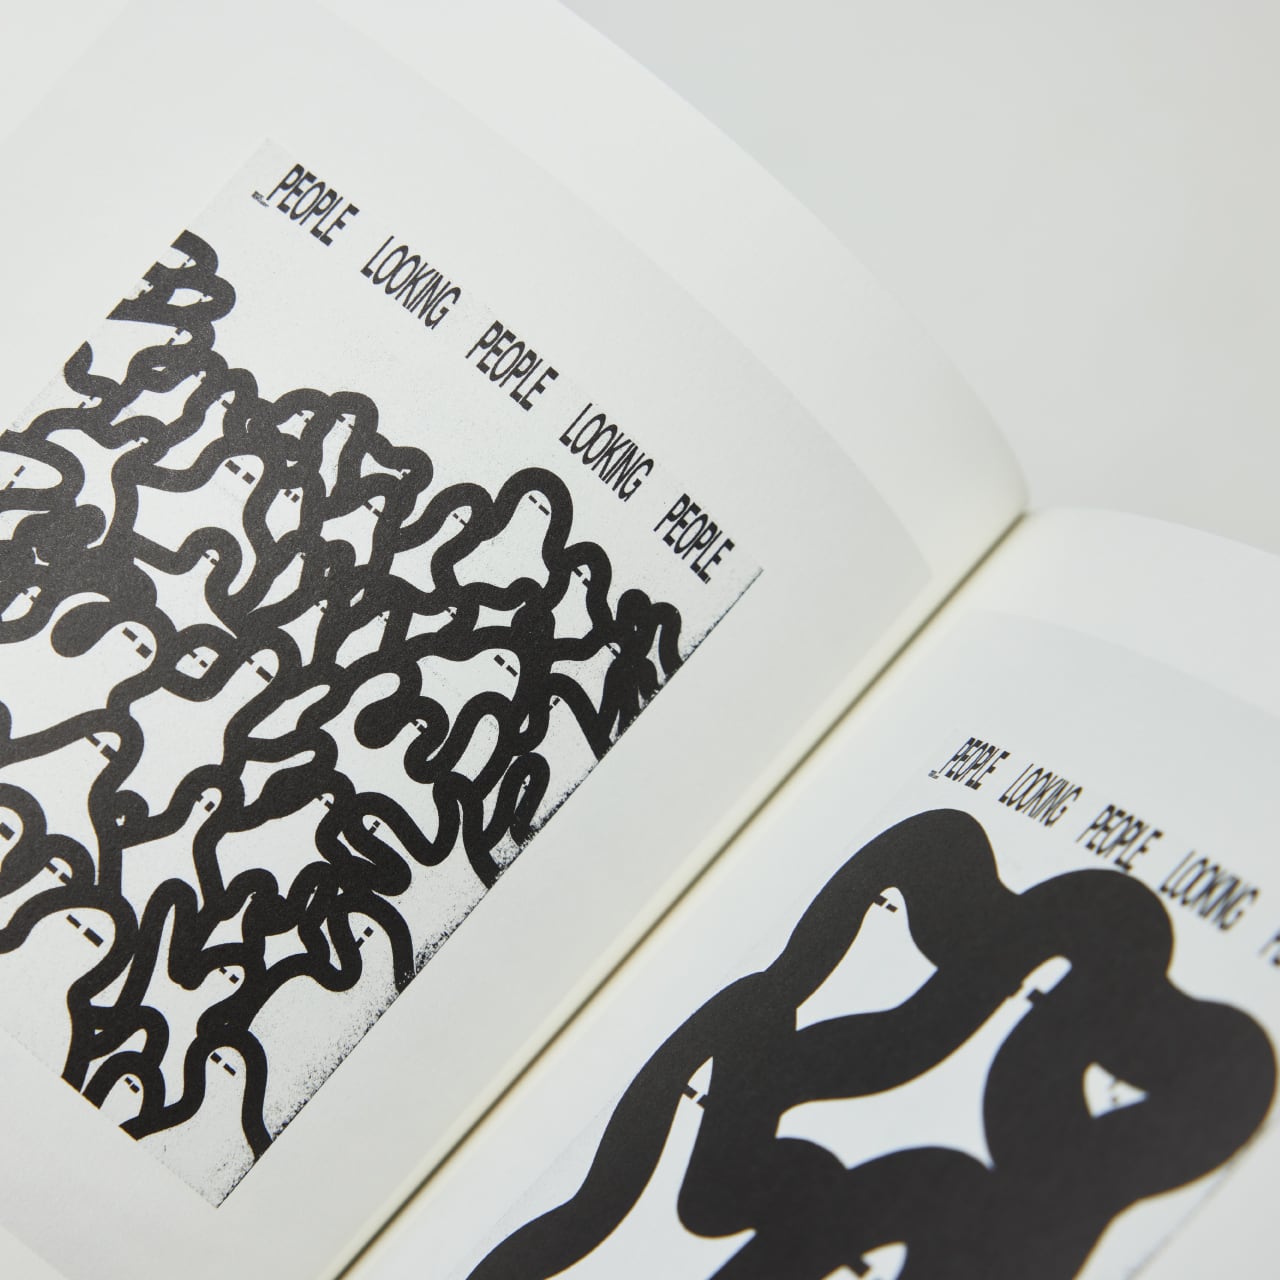 PEOPLE LOOKING PEOPLE LOOKING PEOPLE.
PEOPLE LOOKING PEOPLE LOOKING